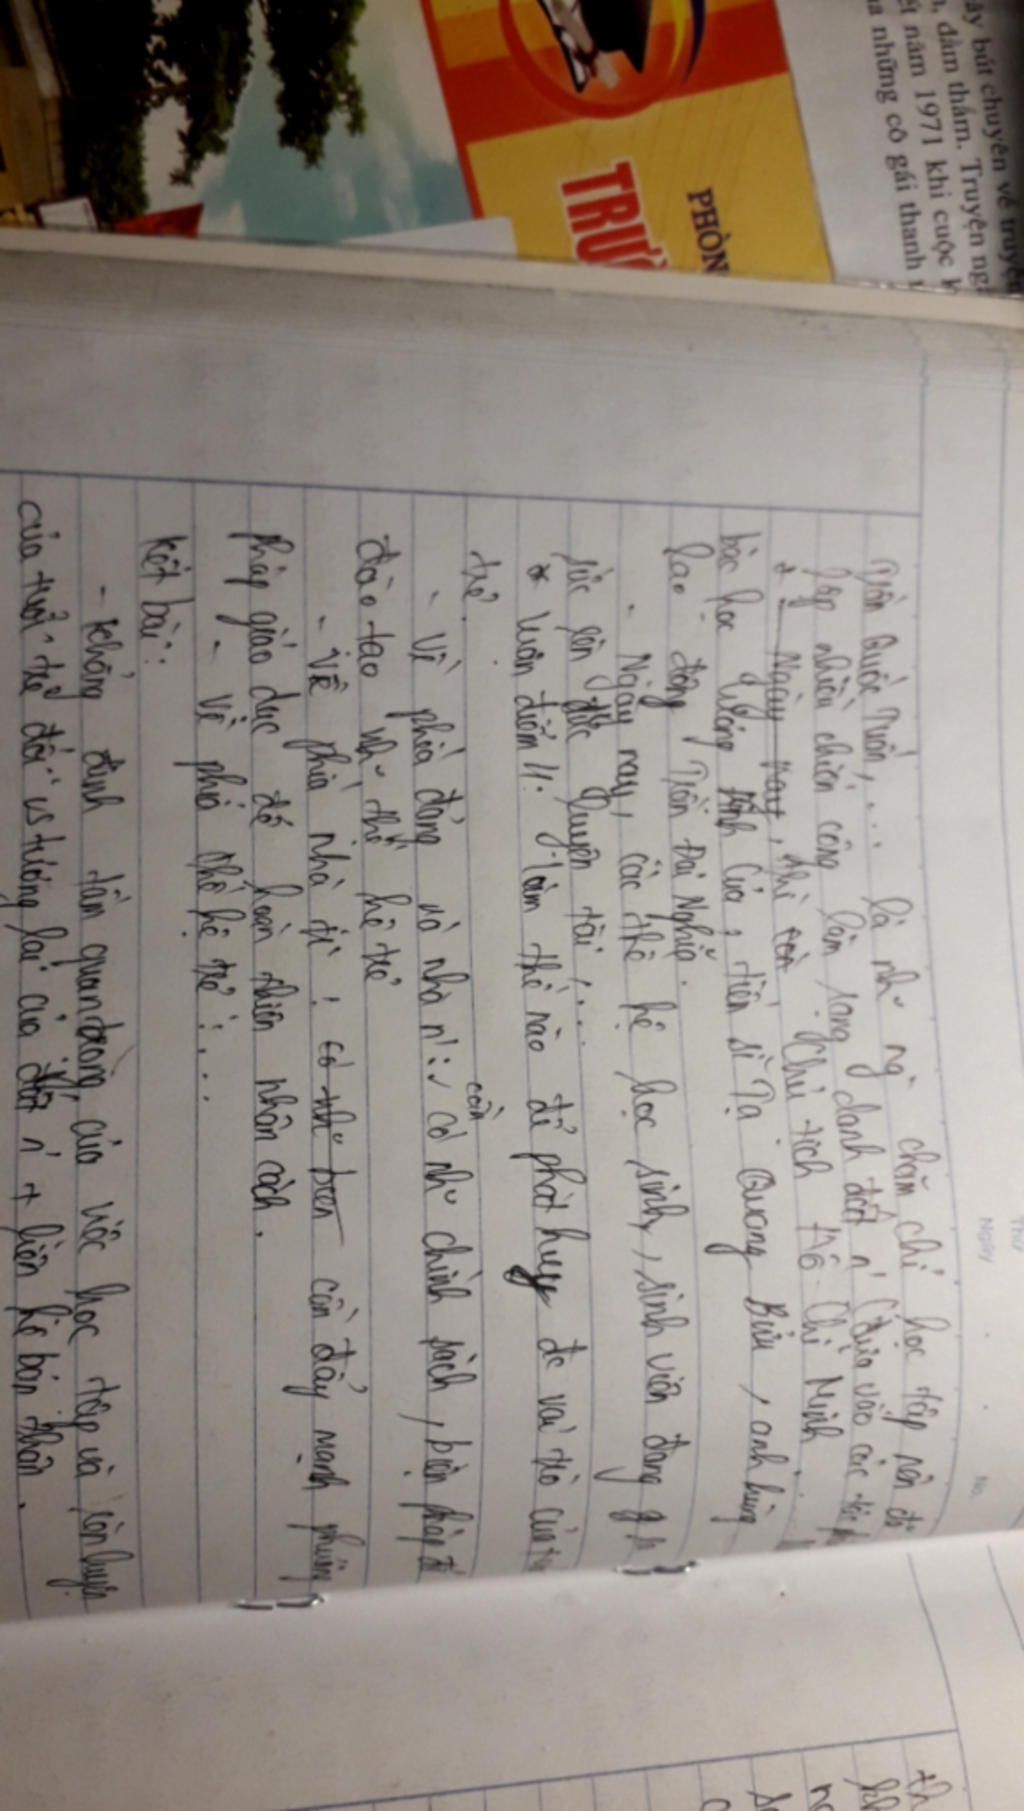 ây bút chuyên về truyện
, đằm thắm. Truyện ng
ết năm 1971 khi cuộc k
a những cô gái thanh
PHÒN
TRƯỜ
Thứ
Ngày
No.
Trần Quốc Tuấn,... là nh~ ng` chăm chỉ học tập nên đã
lập nhiều chiến công làm rạng danh đất n' (dựa vào các
+ Ngày nay, thì còn Chủ tịch Hồ Chí Minh
bác học Lương Của, tiến sĩ Tạ Quang Bửu, anh hùng
lao động Trần Đại Nghĩa.
- Ngày nay, các thế hệ học sinh, sinh viên đang
sức rèn đức luyện tài,...
* Luận điểm 4: Làm thế nào để phát huy đc vai trò của
trẻ.
- Về phía đảng và nhà n': cần có nh~ chính sách, biện pháp
đào tạo nh~ thế hệ trẻ
- Về phía nhà tr: có nh~ cần đẩy mạnh
pháp giáo dục để hoàn thiện nhân cách.
- Về phía thế hệ trẻ:...
Kết bài:
- Khẳng định tầm quan trọng của việc học tập và rèn luyện
của tuổi trẻ đối vs tương lai của đất n' + liên hệ bản thân.